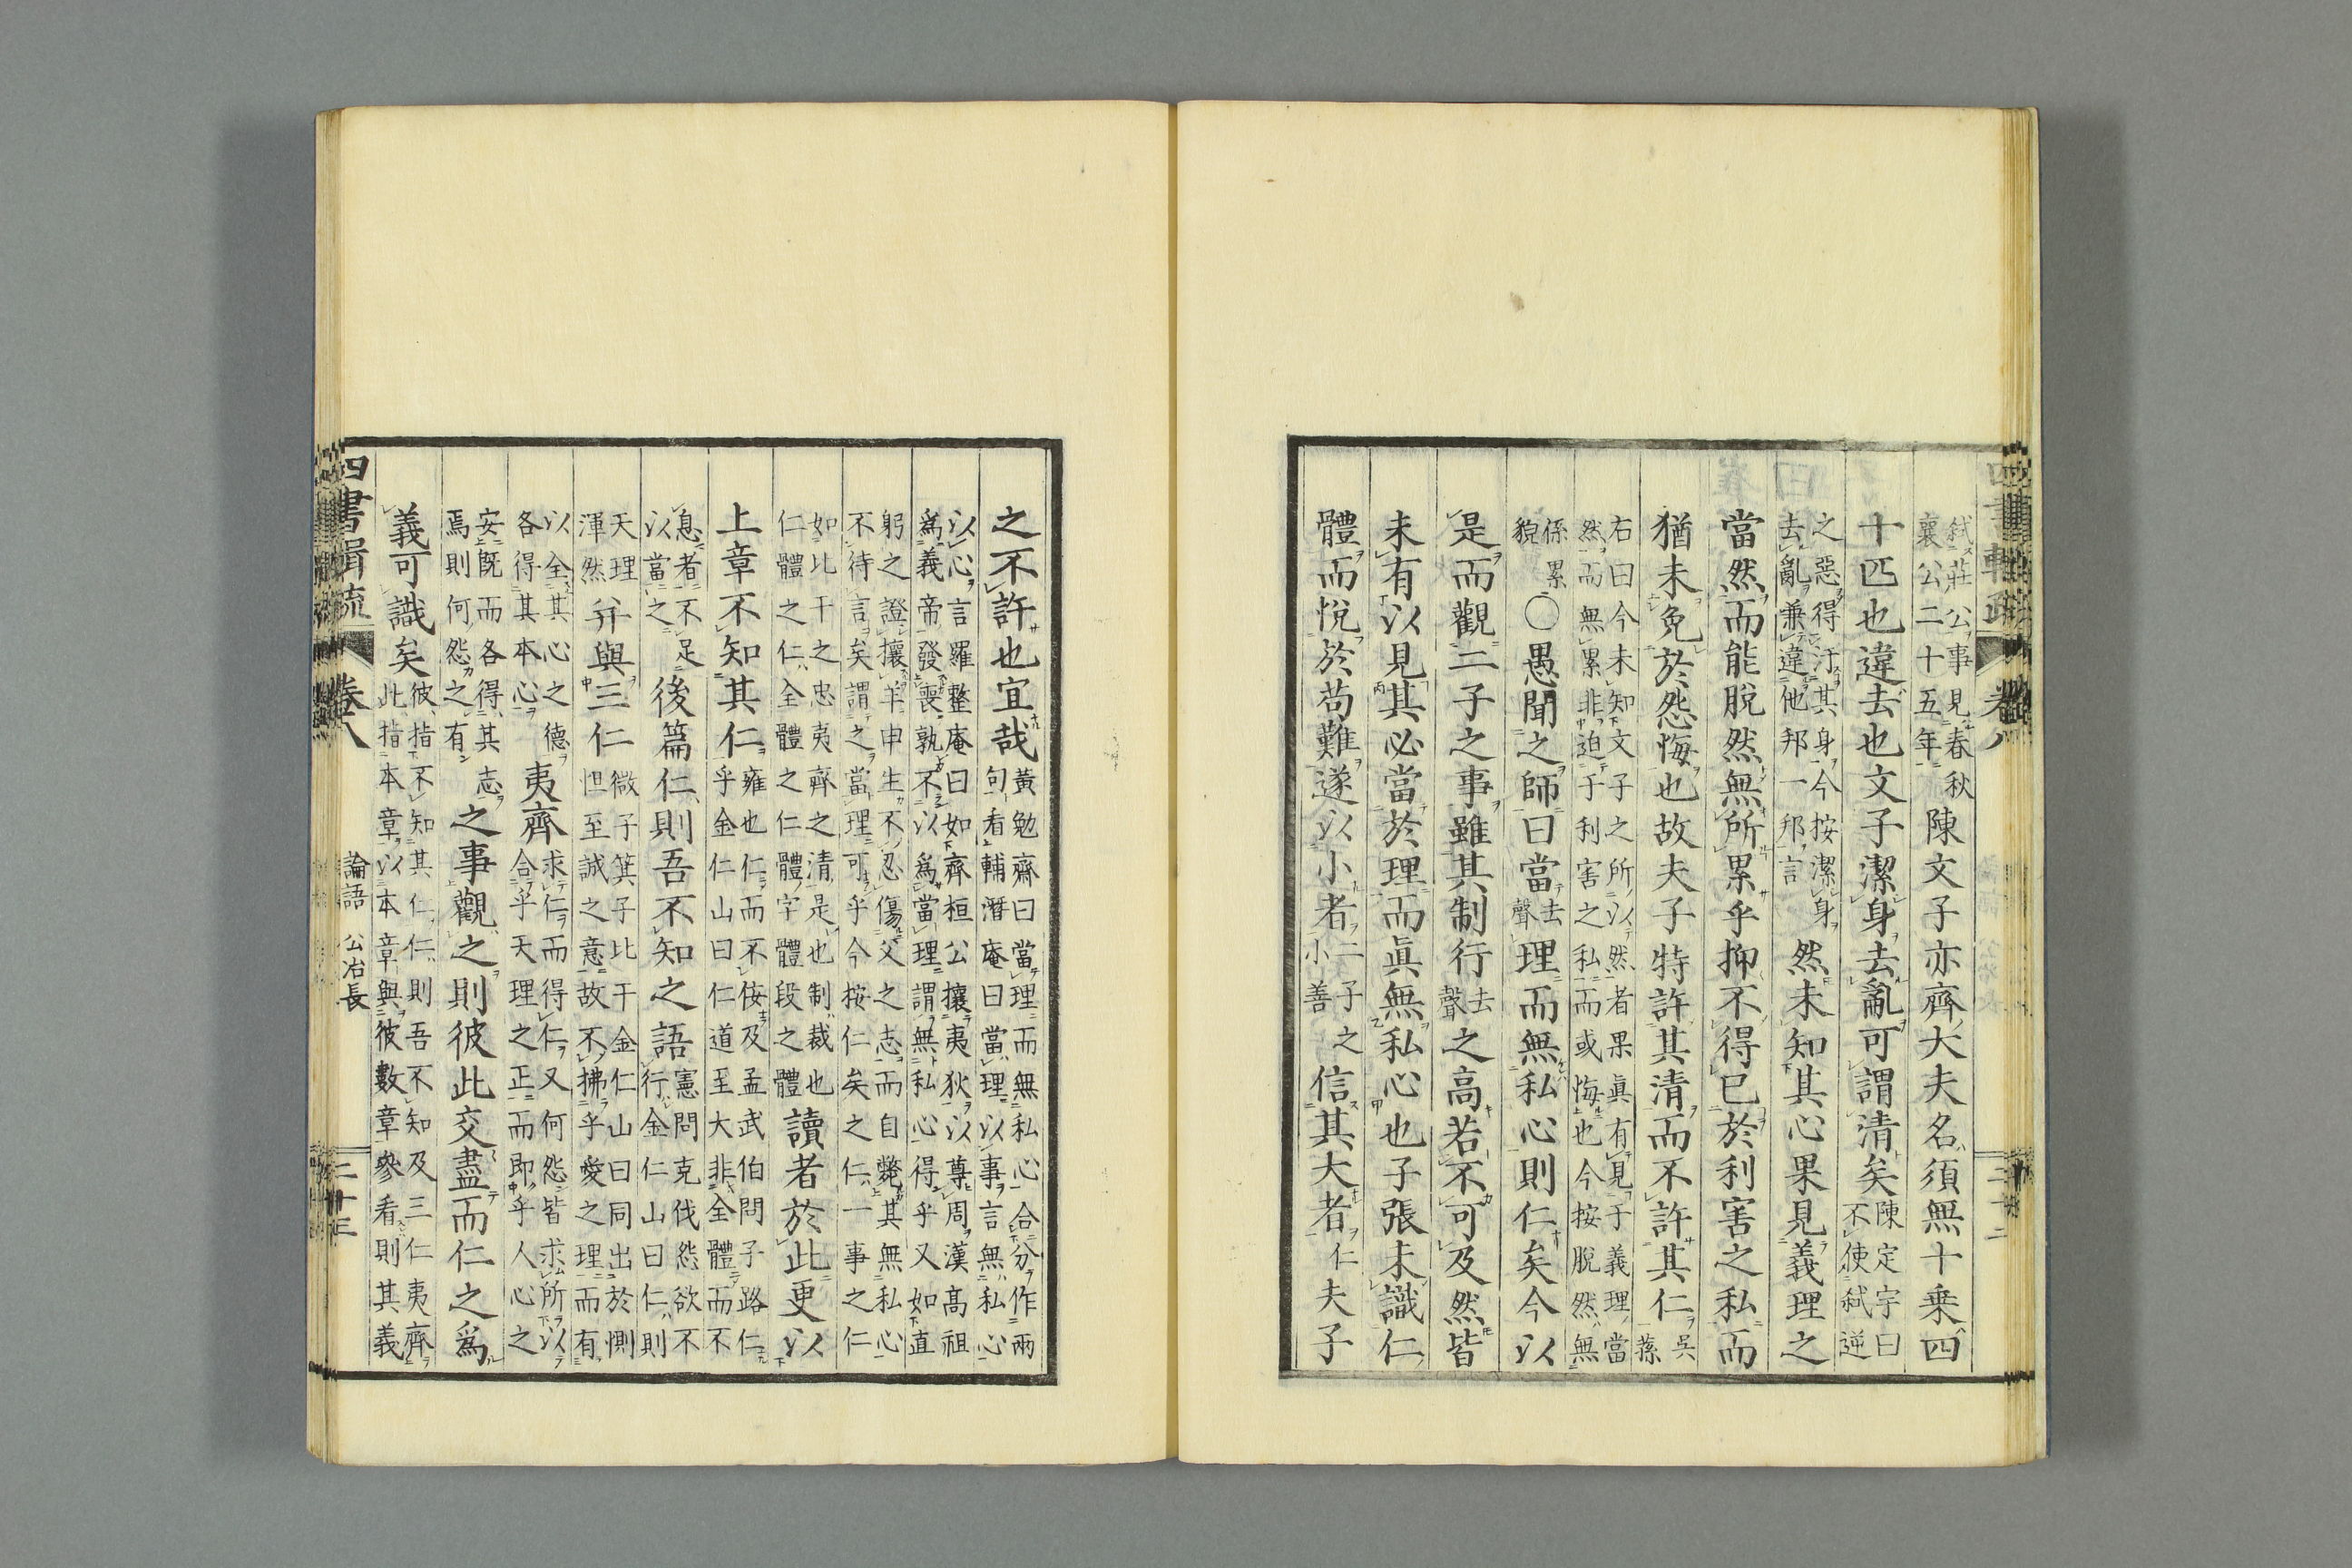 弑莊公事見春秋襄公二十五年陳文子亦齊大夫名須無十乗四
十匹也違去也文子潔身去亂可謂清矣陳定宇曰不使弑逆
之惡得汙其身今按潔身去亂兼違他邦一邦言然未知其心果見義理之
當然而能脫然無所累乎抑不得已於利害之私而
猶未免於怨悔也故夫子特許其清而不許其仁呉蓀
右曰今未知文子之所以然者果眞有見于義理當然而無累非迫于利害之私而或悔也今按脫然無
係累貌〇愚聞之師曰當去聲理而無私心則仁矣今以
是而觀二子之事雖其制行去聲之高若不可及然皆
未有以見其必當於理而眞無私心也子張未識仁
體而悅於苟難遂以小者二子之小善信其大者仁夫子
之不許也宜哉黄勉齋曰當理而無私心合分作兩句看輔潛庵曰當理以事言無私心
以心言羅整庵曰如齊桓公攘夷狄以尊周漢髙祖爲義帝發喪孰不以爲當理謂無私心得乎又如直
躬之證攘羊申生不忍傷父之志而自斃其無私心不待言矣謂之當理可乎今按仁矣之仁一事之仁
如比干之忠夷齊之清是也制裁也仁體之仁全體之仁體字體段之體讀者於此更以
上章不知其仁雍也仁而不佞及孟武伯問子路仁乎金仁山曰仁道至大非全體而不
息者不足以當之後篇仁則吾不知之語憲問克伐怨欲不行金仁山曰仁則
天理渾然并與三仁微子箕子比干金仁山曰同出於惻怛至誠之意故不拂乎愛之理而有
以全其心之德各得其本心夷齊求仁而得仁又何怨皆求所以合乎天理之正而即乎人心之
安既而各得其志焉則何怨之有之事觀之則彼此交盡而仁之爲
義可識矣彼指不知其仁仁則吾不知及三仁夷齊此指本章以本章與彼數章參看則其義
四書輯疏 卷八 論語 公冶長 二十三